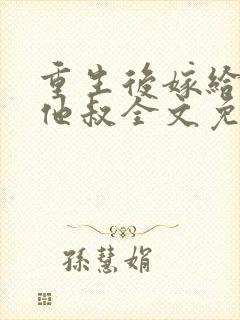 重生後嫁給
他叔全文免
孫慧娟